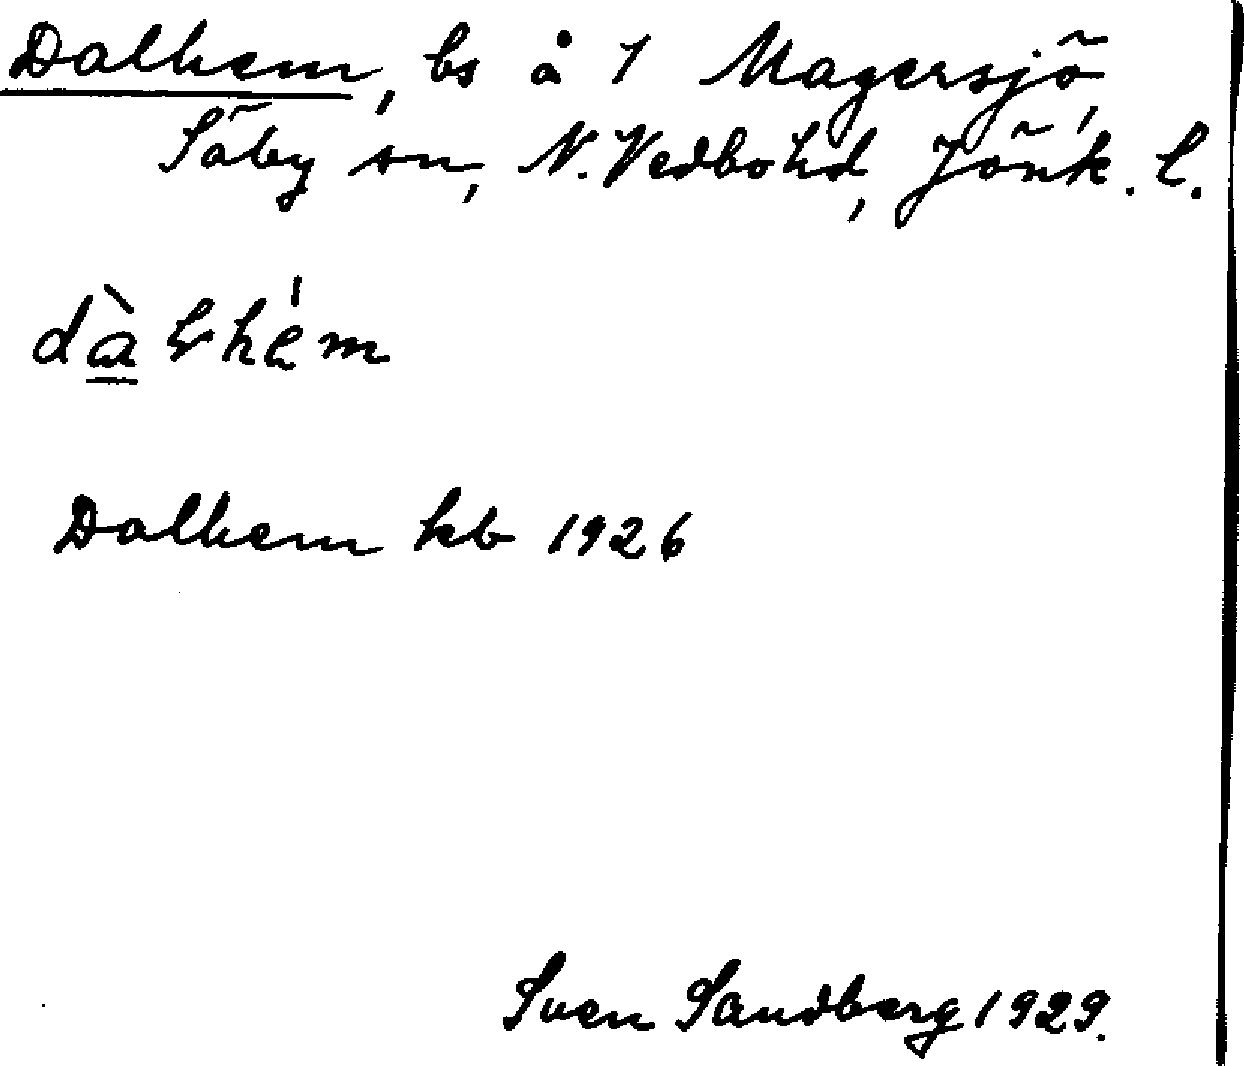 Dalhem, bs å 1 Magersjö,
Säby sn, N. Vedbohd, Jönk. l.
dàlhém
Dalhem kb 1926
Sven Sandberg 1929.